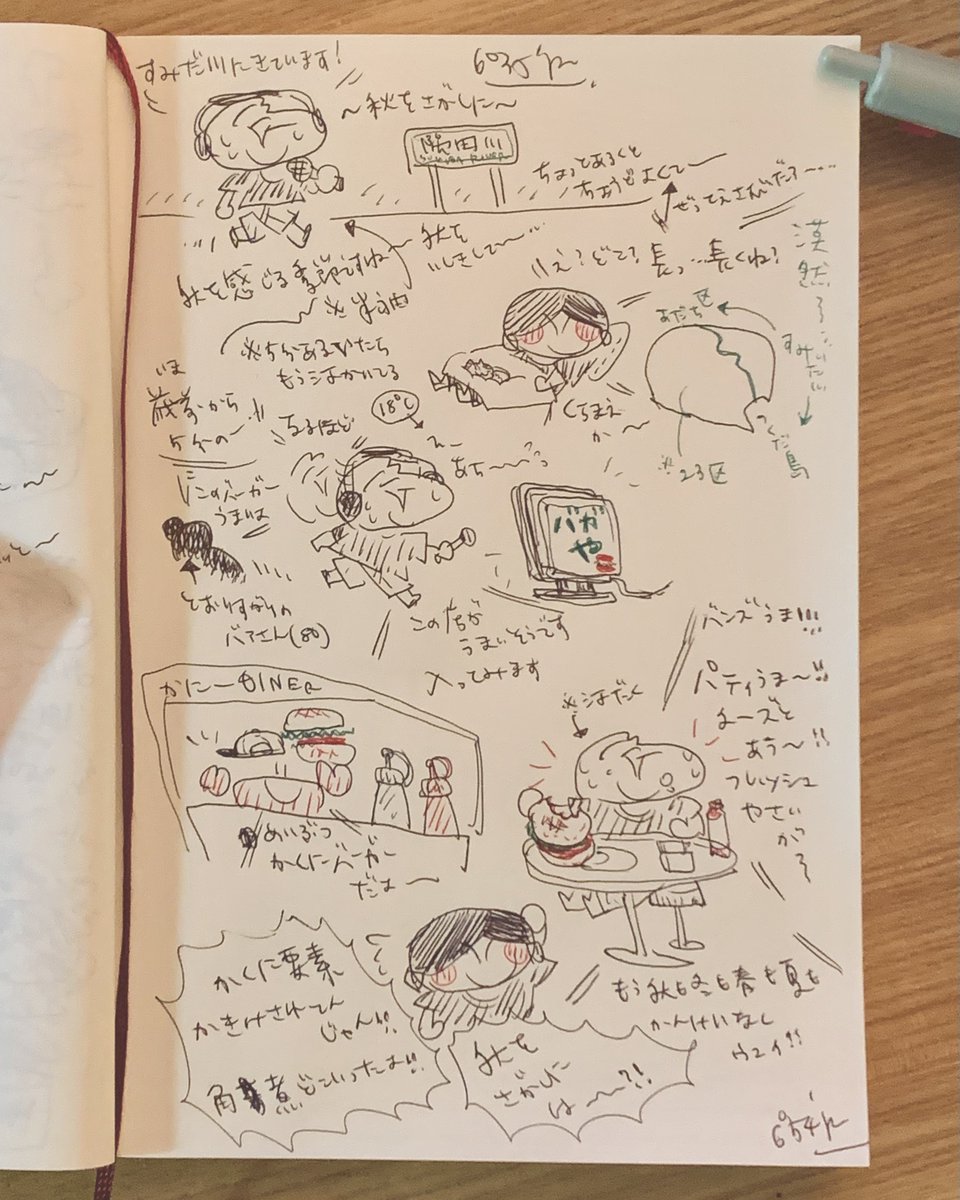 すみだ川にきています!
〜秋をさがしに〜
隅田川
SUMIDA RIVER
ちょっとあるくと
ちょうどよくて〜
ぜってえさんぽだろ〜…
秋を
いしきして〜…
秋を感じる季節ですね
え?どこ?長っ…長くね?
漠然
あだち区
すみだ川
つくだ島
※23区
※5分あるいたら
もう汗かいてる
いま
から
5分の
なるほど
18°C
えー
あち〜〜っ
くちまえ
か〜
「このバーガー
うまいよ
とおりすがりの
バアさん(80)
バガ
や
この店が
うまいそうです
入ってみます
バンズうま!!!
パティうま〜!!
チーズと
あう〜!!
フレッシュ
やさい
が〜
※汗だく
かに一DINER
めいぶつ
かくにバーガー
だよ〜
かくに要素
かきけされてん
じゃん!!
角煮どこいったよ!!
秋を
さがしに
は〜?!!
もう秋も冬も春も夏も
かんけいなし
ウェイ!!